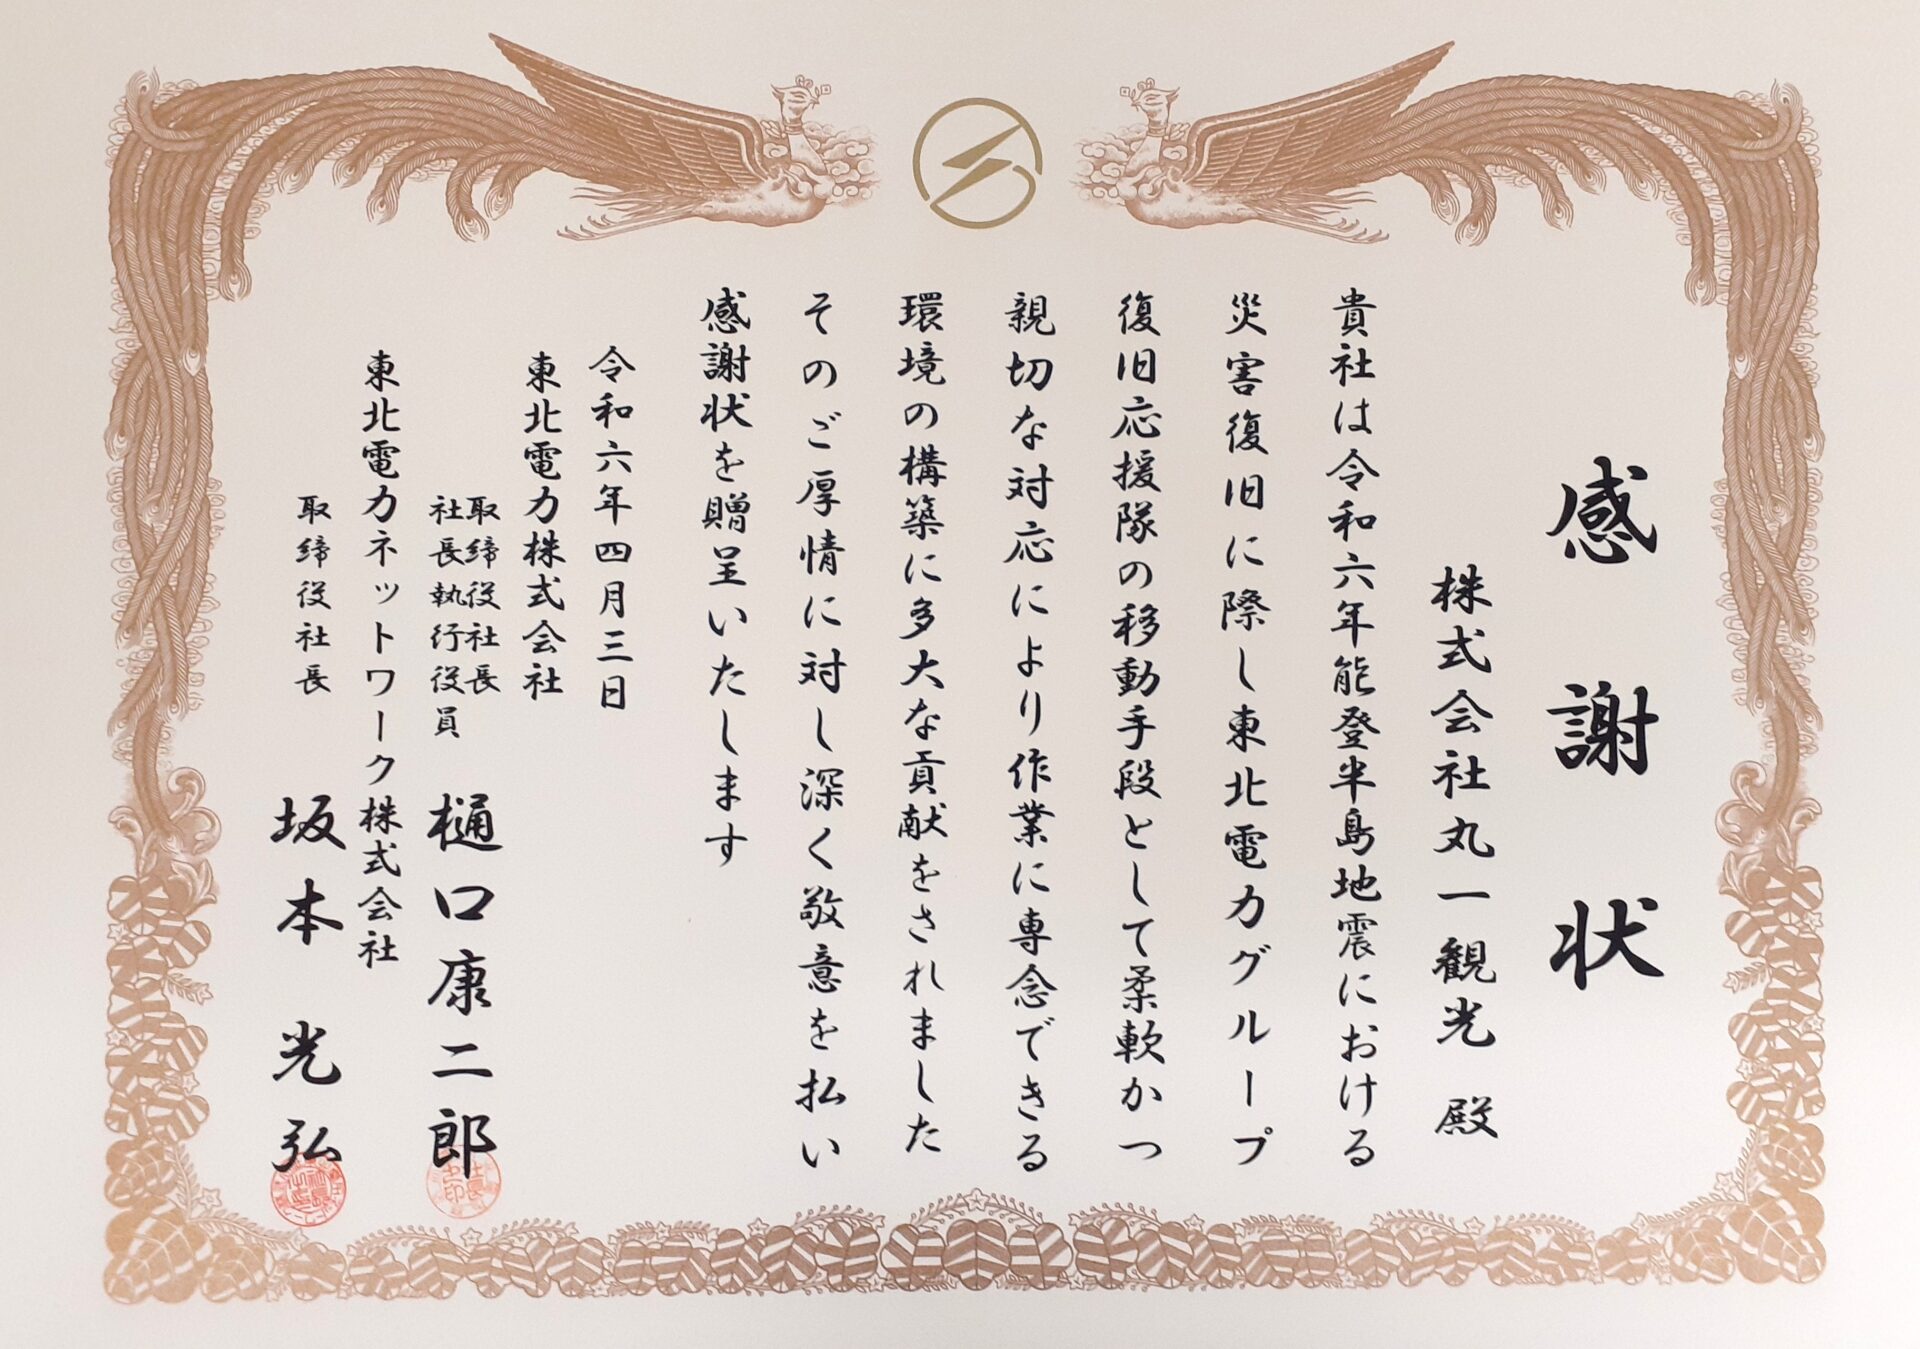 感謝状
株式会社丸一観光 殿
貴社は令和六年能登半島地震における
災害復旧に際し東北電力グループ
復旧応援隊の移動手段として柔軟かつ
親切な対応により作業に専念できる
環境の構築に多大な貢献をされました
そのご厚情に対し深く敬意を払い
感謝状を贈呈いたします
令和六年四月三日
東北電力株式会社
取締役社長
社長執行役員 樋口康二郎
東北電力ネットワーク株式会社
取締役社長 坂本光弘